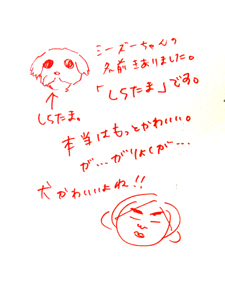 シーズーちゃんの
名前きありました。
「しらたま」です。
しらたま。
本当はもっとかわいい。
が…がりょくが…
犬かわいいよね!!